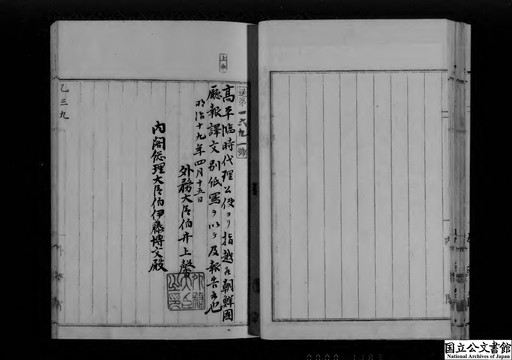 上申
送第一六九一號
高平臨時代理公使ヨリ指越候朝鮮国
廰報譯文別紙寫ヲ以テ及報告候也
明治十九年四月十五日
外務大臣伯井上馨
内閣総理大臣伯伊藤博文殿
乙三九
国立公文書館
National Archives of Japan